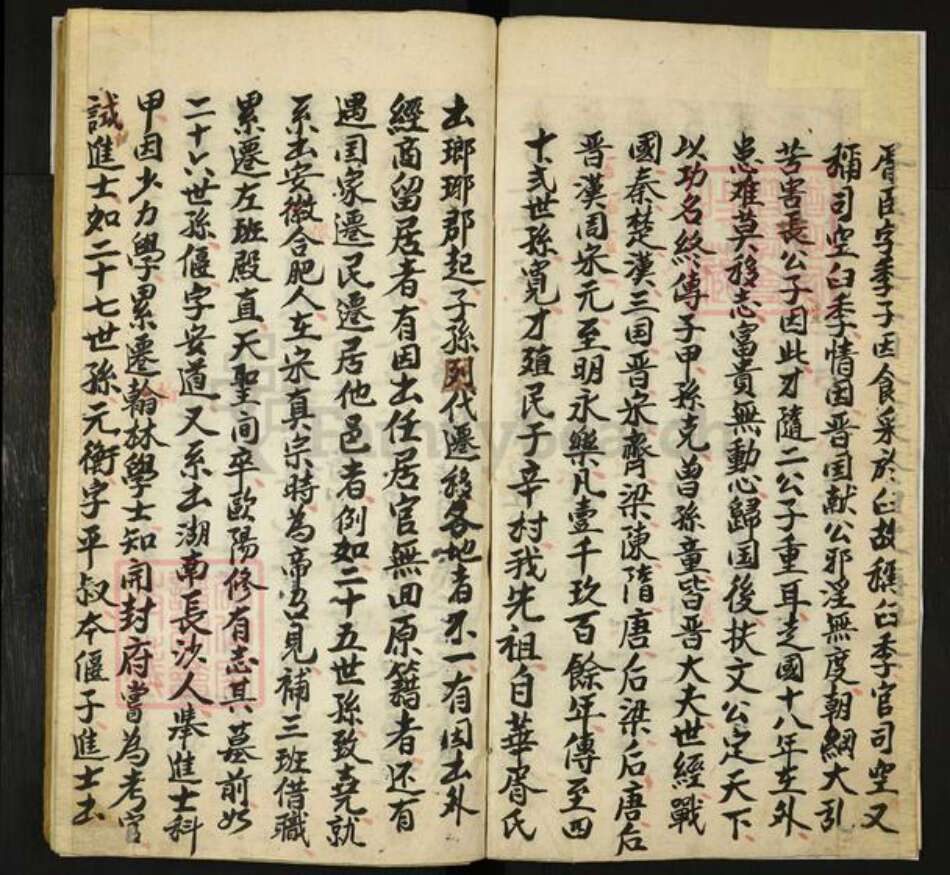 胥臣字季子因食采於臼故稱臼季官司空又
稱司空臼季情因晋国献公邪淫無度朝綱大引
苦害長公子因此才隨二公子重耳走國十八年在外
患难莫移志富貴無動心歸国後扶文公定天下
以功名終傳子甲孫克曾孫童皆晋大夫世經戰
國秦楚漢三国晋宋齊梁陳隋唐后梁后唐后
晋漢周宋元至明永樂凡壹千玖百餘年傳至四
十弍世孫寬才殖民于辛村我先祖自華胥氏
出瑯琊郡起子孫列代遷移各地者不一有因出外
經商留居者有因出任居官無回原籍者还有
遇国家遷民遷居他邑者例如二十五世孫致堯就
系出安徽合肥人在宋真宗時為帝召見補三班借職
累遷左班殿直天聖间卒歐陽修有志其墓前如
二十六世孫偃字安道又系出湖南長沙人舉進士科
甲因少力學累遷翰林學士知開封府嘗為考官
試進士如二十七世孫元衡字平叔本偃子進士出